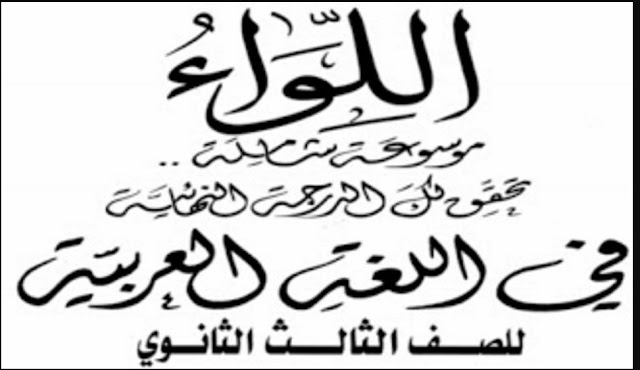 اللِّوَاءُ
موسوعة شاملة ..
تحقق لك الدرجة النهائية
في اللغة العربية
للصف الثالث الثانوي